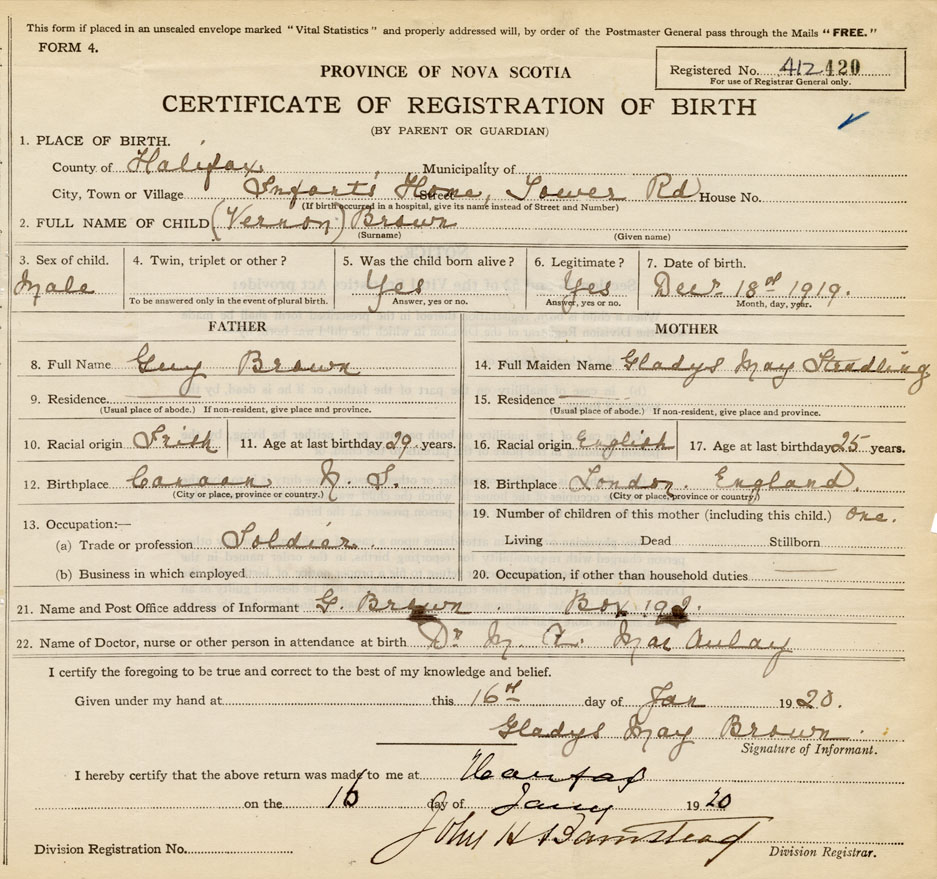 This form if placed in an unsealed envelope marked "Vital Statistics" and properly addressed will, by order of the Postmaster General pass through the Mails "FREE."
FORM 4.
Registered No. 412 420
For use of Registrar General only.
PROVINCE OF NOVA SCOTIA
CERTIFICATE OF REGISTRATION OF BIRTH
(BY PARENT OR GUARDIAN)
1. PLACE OF BIRTH.
County of Halifax, Municipality of
City, Town or Village Infants Home, Tower Rd Street House No.
(If birth occurred in a hospital, give its name instead of Street and Number)
2. FULL NAME OF CHILD (Vernon) Brown
(Surname) (Given name)
3. Sex of child. 4. Twin, triplet or other? 5. Was the child born alive? 6. Legitimate? 7. Date of birth.
Male Yes Yes Decr 18th 1919.
To be answered only in the event of plural birth. Answer, yes or no. Answer, yes or no. Month, day, year.
FATHER MOTHER
8. Full Name Guy Brown 14. Full Maiden Name Gladys May
9. Residence 15. Residence
(Usual place of abode.) If non-resident, give place and province. (Usual place of abode.) If non-resident, give place and province.
10. Racial origin Irish 11. Age at last birthday 29 years. 16. Racial origin English 17. Age at last birthday 25 years.
12. Birthplace Canaan N. S. 18. Birthplace London. England.
(City or place, province or country.) (City or place, province or country)
13. Occupation:— 19. Number of children of this mother (including this child.) one.
(a) Trade or profession Soldier Living Dead Stillborn
(b) Business in which employed 20. Occupation, if other than household duties
21. Name and Post Office address of Informant G. Brown. Box
22. Name of Doctor, nurse or other person in attendance at birth Dr M. Mac Aulay
I certify the foregoing to be true and correct to the best of my knowledge and belief.
Given under my hand at this 16th day of Jan 1920.
Gladys May Brown
Signature of Informant.
I hereby certify that the above return was made to me at Halifax
on the 16 day of Jany 1920
John H Barnstead
Division Registration No. Division Registrar.